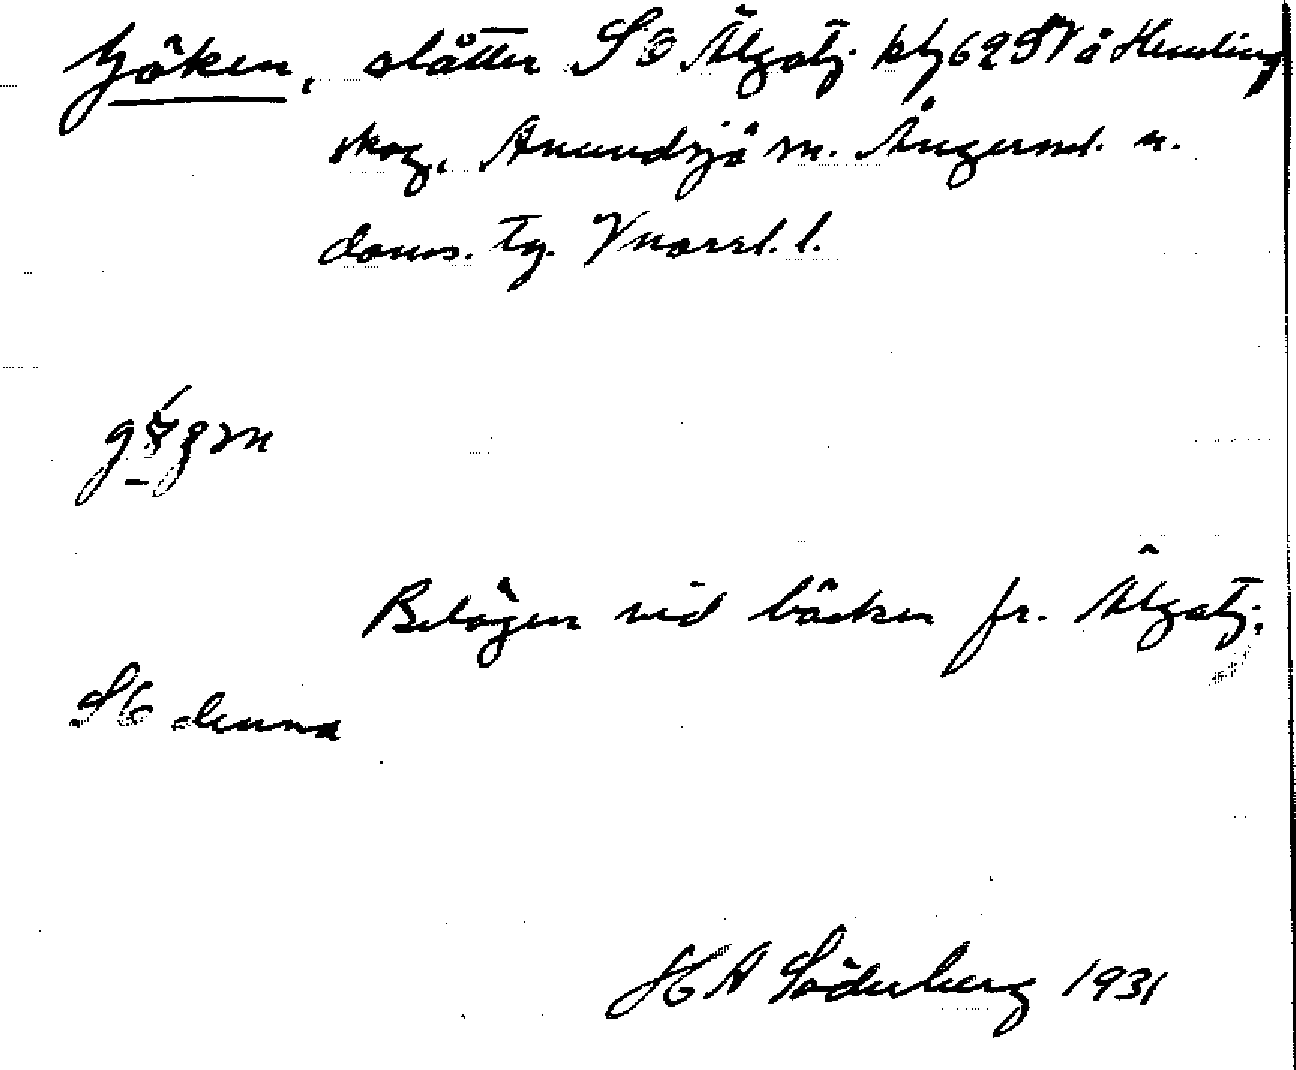 Göken, slåtter SO Älgatj. kbg 62 SV å Hemling
skog, Anundsjö sn. Ångerml. n.
doms. tg. Vnorrl. l.
Belägen vid bäcken fr. Älgatj.
SO denna
H A Söderberg 1931